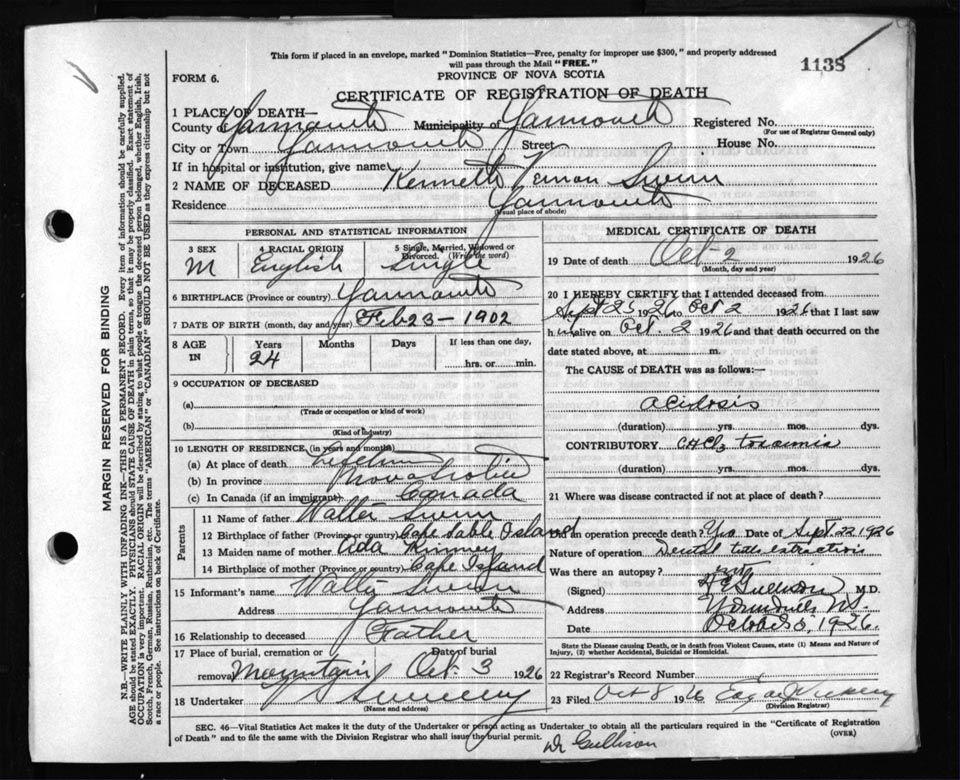 This form if placed in an envelope, marked "Dominion Statistics—Free, penalty for improper use $300," and properly addressed
will pass through the Mail "FREE."
FORM 6.
PROVINCE OF NOVA SCOTIA
1138
CERTIFICATE OF REGISTRATION OF DEATH
1 PLACE OF DEATH—
County of Yarmouth Municipality of Yarmouth Registered No.
(For use of Registrar General only)
City or Town Yarmouth Street House No.
If in hospital or institution, give name
2 NAME OF DECEASED Kenneth Vernon Swim
Residence Yarmouth
(Usual place of abode)
PERSONAL AND STATISTICAL INFORMATION
3 SEX 4 RACIAL ORIGIN 5 Single, Married, Widowed or Divorced. (Write the word)
M English Single
6 BIRTHPLACE (Province or country) Yarmouth
7 DATE OF BIRTH (month, day and year) Feb 23 - 1902
8 AGE IN Years Months Days If less than one day,
24 hrs. or min.
9 OCCUPATION OF DECEASED
(a)
(Trade or occupation or kind of work)
(b)
(Kind of industry)
10 LENGTH OF RESIDENCE (in years and months)
(a) At place of death
(b) In province Nova Scotia
(c) In Canada (if an immigrant) Canada
Parents
11 Name of father Walter Swim
12 Birthplace of father (Province or country) Cape Sable Island
13 Maiden name of mother Ada Kinney
14 Birthplace of mother (Province or Country) Cape Island
15 Informant's name Walter Swim
Address Yarmouth
16 Relationship to deceased Father
17 Place of burial, cremation or removal Date of burial
Mountain Oct. 3 1926
18 Undertaker Sweeny
(Name and address)
MEDICAL CERTIFICATE OF DEATH
19 Date of death Oct - 2 1926
(Month, day and year)
20 I HEREBY CERTIFY that I attended deceased from
Sept 25 1926 to Oct 2 1926 that I last saw
him alive on Oct. 2 1926 and that death occurred on the
date stated above, at m.
The CAUSE of DEATH was as follows:—
acidosis
(duration) yrs. mos. dys.
CONTRIBUTORY CHCl3 toxaemia
(duration) yrs. mos. dys.
21 Where was disease contracted if not at place of death?
Did an operation precede death? Yes Date of Sept. 22 1926
Nature of operation Dental teeth extraction
Was there an autopsy? no
(Signed) M.D.
Address Yarmouth, N.S.
Date October 3, 1926.
State the Disease causing Death, or in death from Violent Causes, state (1) Means and Nature of
Injury, (2) whether Accidental, Suicidal or Homicidal.
22 Registrar's Record Number
23 Filed Oct 8 1926
(Division Registrar)
SEC. 46—Vital Statistics Act makes it the duty of the Undertaker or person acting as Undertaker to obtain all the particulars required in the "Certificate of Registration
of Death" and to file the same with the Division Registrar who shall issue the burial permit.
(OVER)
Dr Gullison
MARGIN RESERVED FOR BINDING
N.B.—WRITE PLAINLY WITH UNFADING INK—THIS IS A PERMANENT RECORD. Every item of information should be carefully supplied.
AGE should be stated EXACTLY. PHYSICIANS should STATE CAUSE OF DEATH in plain terms, so that it may be properly classified. Exact statement of
OCCUPATION is very important. RACIAL ORIGIN will be described by stating to what people or tongue the deceased person belonged, whether English, Irish,
Scotch, French, German, Russian, Ruthenian, etc. The terms "AMERICAN" or "CANADIAN" SHOULD NOT BE USED as they express citizenship but not
a race or people. See instructions on back of Certificate.